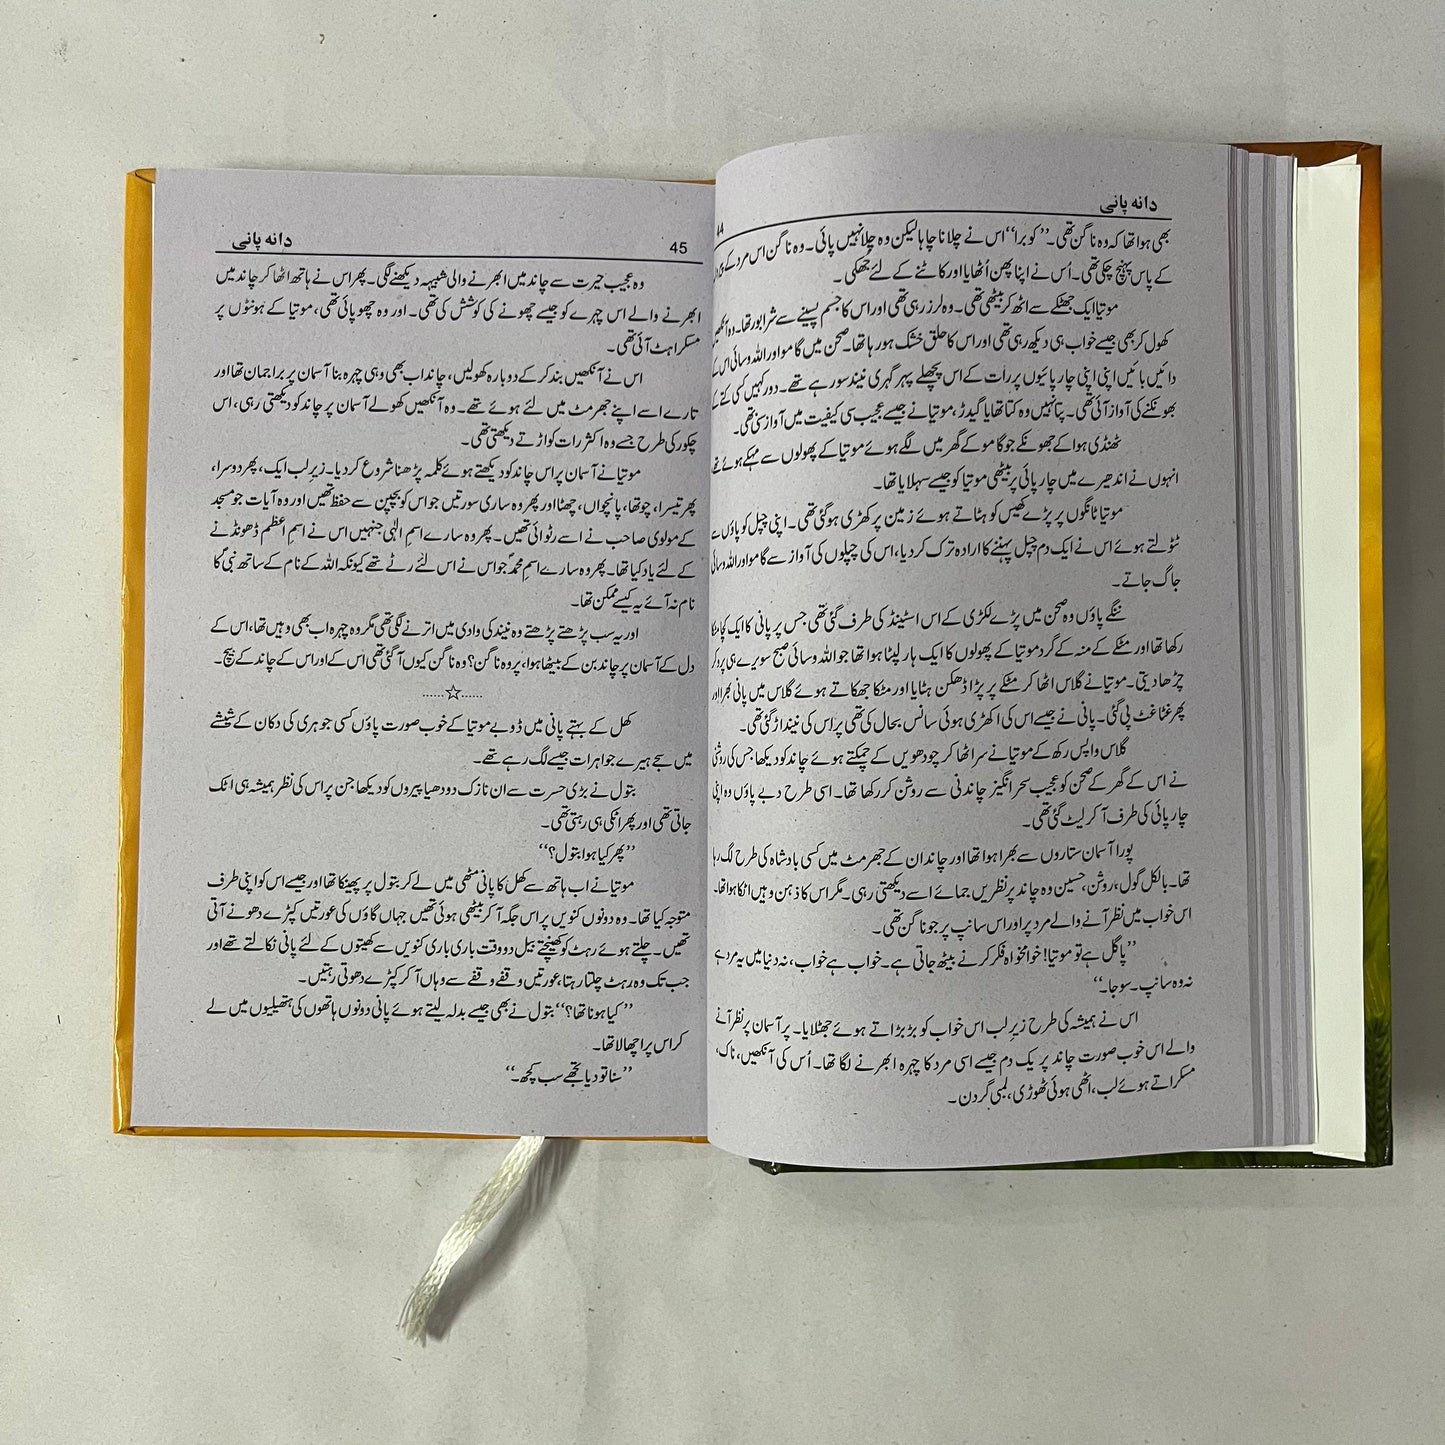 دانہ پانی
44
بھی ہوا تھا کہ وہ ناگن تھی۔ ’’کوبرا‘‘ اس نے چلانا چاہا لیکن وہ چلا نہیں پائی۔ وہ ناگن اس مرد کے
کے پاس پہنچ چکی تھی۔ اُس نے اپنا پھن اُٹھایا اور کاٹنے کے لئے جھکی۔
موتیا ایک جھٹکے سے اٹھ کر بیٹھی تھی۔ وہ لرز رہی تھی اور اس کا جسم پسینے سے شرابور تھا۔ وہ آنکھیں
کھول کر بھی جیسے خواب ہی دیکھ رہی تھی اور اس کا حلق خشک ہو رہا تھا۔ صحن میں گامو اور اللہ وسائی اس کے
دائیں بائیں اپنی اپنی چارپائیوں پر رات کے اس پچھلے پہر گہری نیند سو رہے تھے۔ دور کہیں کسی کتے کے
بھونکنے کی آواز آئی تھی۔ پتا نہیں وہ کتا تھا یا گیدڑ، موتیا نے جیسے عجیب سی کیفیت میں آواز سنی تھی۔
ٹھنڈی ہوا کے جھونکے جو گامو کے گھر میں لگے ہوئے موتیا کے پھولوں سے مہکے ہوئے تھے
انہوں نے اندھیرے میں چارپائی پر بیٹھی موتیا کو جیسے سہلایا تھا۔
موتیا ٹانگوں پر پڑے کھیس کو ہٹاتے ہوئے زمین پر کھڑی ہو گئی تھی۔ اپنی چپل کو پاؤں سے
ٹٹولتے ہوئے اس نے ایک دم چپل پہننے کا ارادہ ترک کر دیا، اس کی چپلوں کی آواز سے گامو اور اللہ وسائی
جاگ جاتے۔
ننگے پاؤں وہ صحن میں پڑے لکڑی کے اس اسٹینڈ کی طرف گئی تھی جس پر پانی کا ایک کچا مٹکا
رکھا تھا اور مٹکے کے منہ کے گرد موتیا کے پھولوں کا ایک ہار لپٹا ہوا تھا جو اللہ وسائی صبح سویرے ہی پرو کر
چڑھا دیتی۔ موتیا نے گلاس اٹھا کر مٹکے پر پڑا ڈھکن ہٹایا اور مٹکا جھکاتے ہوئے گلاس میں پانی بھرا اور
پھر غٹاغٹ پی گئی۔ پانی نے جیسے اس کی اکھڑی ہوئی سانس بحال کی تھی پر اس کی نیند اڑ گئی تھی۔
گلاس واپس رکھ کے موتیا نے سر اٹھا کر چودھویں کے چمکتے ہوئے چاند کو دیکھا جس کی روشنی
نے اس کے گھر کے صحن کو عجیب سحر انگیز چاندنی سے روشن کر رکھا تھا۔ اسی طرح دبے پاؤں وہ اپنی
چارپائی کی طرف آ کر لیٹ گئی تھی۔
پورا آسمان ستاروں سے بھرا ہوا تھا اور چاند ان کے جھرمٹ میں کسی بادشاہ کی طرح لگ رہا
تھا۔ بالکل گول، روشن، حسین وہ چاند پر نظریں جمائے اسے دیکھتی رہی۔ مگر اس کا ذہن وہیں اٹکا ہوا تھا۔
اس خواب میں نظر آنے والے مرد پر اور اس سانپ پر جو ناگن تھی۔
’’پاگل ہے تو موتیا! خوامخواہ فکر کرنے بیٹھ جاتی ہے۔ خواب ہے خواب، نہ دنیا میں یہ مرد ہے
نہ وہ سانپ۔ سو جا۔‘‘
اس نے ہمیشہ کی طرح زیرِ لب اس خواب کو بڑبڑاتے ہوئے جھٹلایا۔ پر آسمان پر نظر آنے
والے اس خوب صورت چاند پر یک دم جیسے اسی مرد کا چہرہ ابھرنے لگا تھا۔ اُس کی آنکھیں، ناک،
مسکراتے ہوئے لب، اٹھی ہوئی ٹھوڑی، لمبی گردن۔
دانہ پانی
45
وہ عجیب حیرت سے چاند میں ابھرنے والی شبیہہ دیکھنے لگی۔ پھر اس نے ہاتھ اٹھا کر چاند میں
ابھرنے والے اس چہرے کو جیسے چھونے کی کوشش کی تھی۔ اور وہ چھو پائی تھی، موتیا کے ہونٹوں پر
مسکراہٹ آئی تھی۔
اس نے آنکھیں بند کر کے دوبارہ کھولیں، چاند اب بھی وہی چہرہ بنا آسمان پر براجمان تھا اور
تارے اسے اپنے جھرمٹ میں لئے ہوئے تھے۔ وہ آنکھیں کھولے آسمان پر چاند کو دیکھتی رہی، اس
چکور کی طرح جسے وہ اکثر رات کو اڑتے دیکھتی تھی۔
موتیا نے آسمان پر اس چاند کو دیکھتے ہوئے کلمہ پڑھنا شروع کر دیا۔ زیرِ لب ایک، پھر دوسرا،
پھر تیسرا، چوتھا، پانچواں، چھٹا اور پھر وہ ساری سورتیں جو اس کو بچپن سے حفظ تھیں اور وہ آیات جو مسجد
کے مولوی صاحب نے اسے رٹوائی تھیں۔ پھر وہ سارے اسمِ الٰہی جنہیں اس نے اسمِ اعظم ڈھونڈنے
کے لئے یاد کیا تھا۔ پھر وہ سارے اسمِ محمدؐ جو اس نے اس لئے رٹے تھے کیونکہ اللہ کے نام کے ساتھ نبیؐ کا
نام نہ آئے یہ کیسے ممکن تھا۔
اور یہ سب پڑھتے پڑھتے وہ نیند کی وادی میں اترنے لگی تھی مگر وہ چہرہ اب بھی وہیں تھا، اس کے
دل کے آسمان پر چاند بن کے بیٹھا ہوا، پر وہ ناگن؟ وہ ناگن کیوں آ گئی تھی اس کے اور اس کے چاند کے بیچ۔
......☆......
کھل کے بہتے پانی میں ڈوبے موتیا کے خوب صورت پاؤں کسی جوہری کی دکان کے شیشے
میں سجے ہیرے جواہرات جیسے لگ رہے تھے۔
بتول نے بڑی حسرت سے ان نازک دودھیا پیروں کو دیکھا جن پر اس کی نظر ہمیشہ ہی اٹک
جاتی تھی اور پھر اٹکی ہی رہتی تھی۔
’’پھر کیا ہوا بتول؟‘‘
موتیا نے اب ہاتھ سے کھل کا پانی مٹھی میں لے کر بتول پر پھینکا تھا اور جیسے اس کو اپنی طرف
متوجہ کیا تھا۔ وہ دونوں کنویں پر اس جگہ آ کر بیٹھی ہوئی تھیں جہاں گاؤں کی عورتیں کپڑے دھونے آتی
تھیں۔ چلتے ہوئے رہٹ کو کھینچتے بیل دو وقت باری باری کنویں سے کھیتوں کے لئے پانی نکالتے تھے اور
جب تک وہ رہٹ چلتا رہتا، عورتیں وقفے وقفے سے وہاں آ کر کپڑے دھوتی رہتیں۔
’’کیا ہونا تھا؟‘‘ بتول نے بھی جیسے بدلہ لیتے ہوئے پانی دونوں ہاتھوں کی ہتھیلیوں میں لے
کر اس پر اچھالا تھا۔
’’سنا تو دیا تجھے سب کچھ۔‘‘